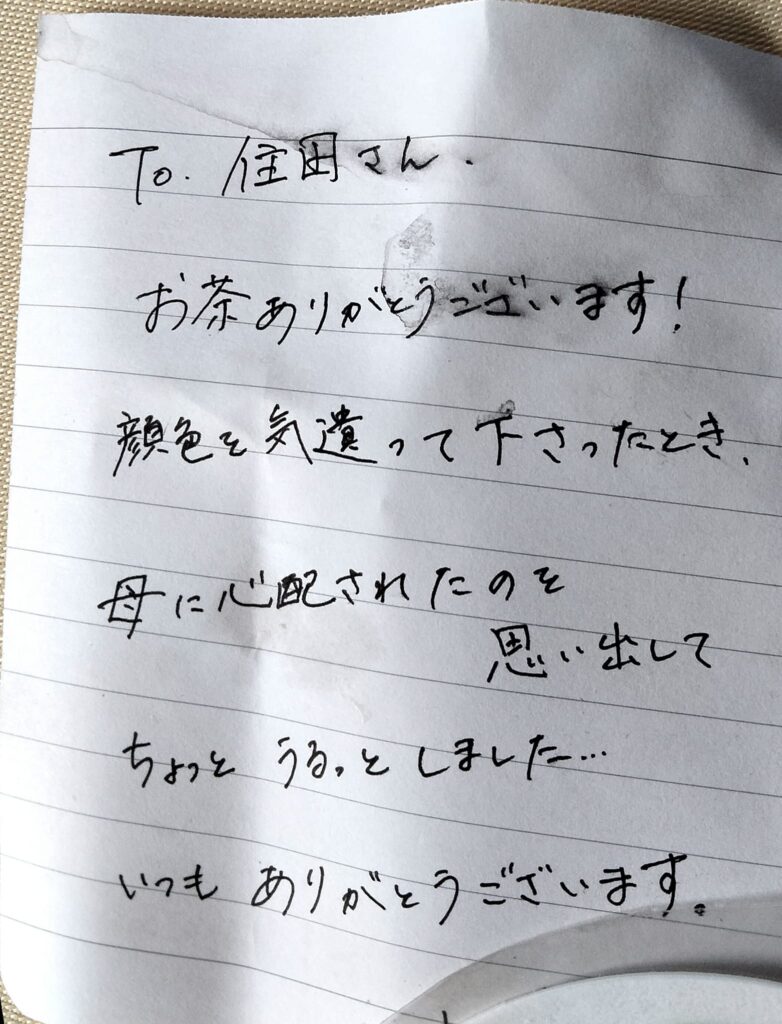 To. 住田さん.
お茶ありがとうございます!
顔色を気遣って下さったとき、
母に心配されたのを
思い出して
ちょっと うるっと しました…
いつも ありがとうございます。